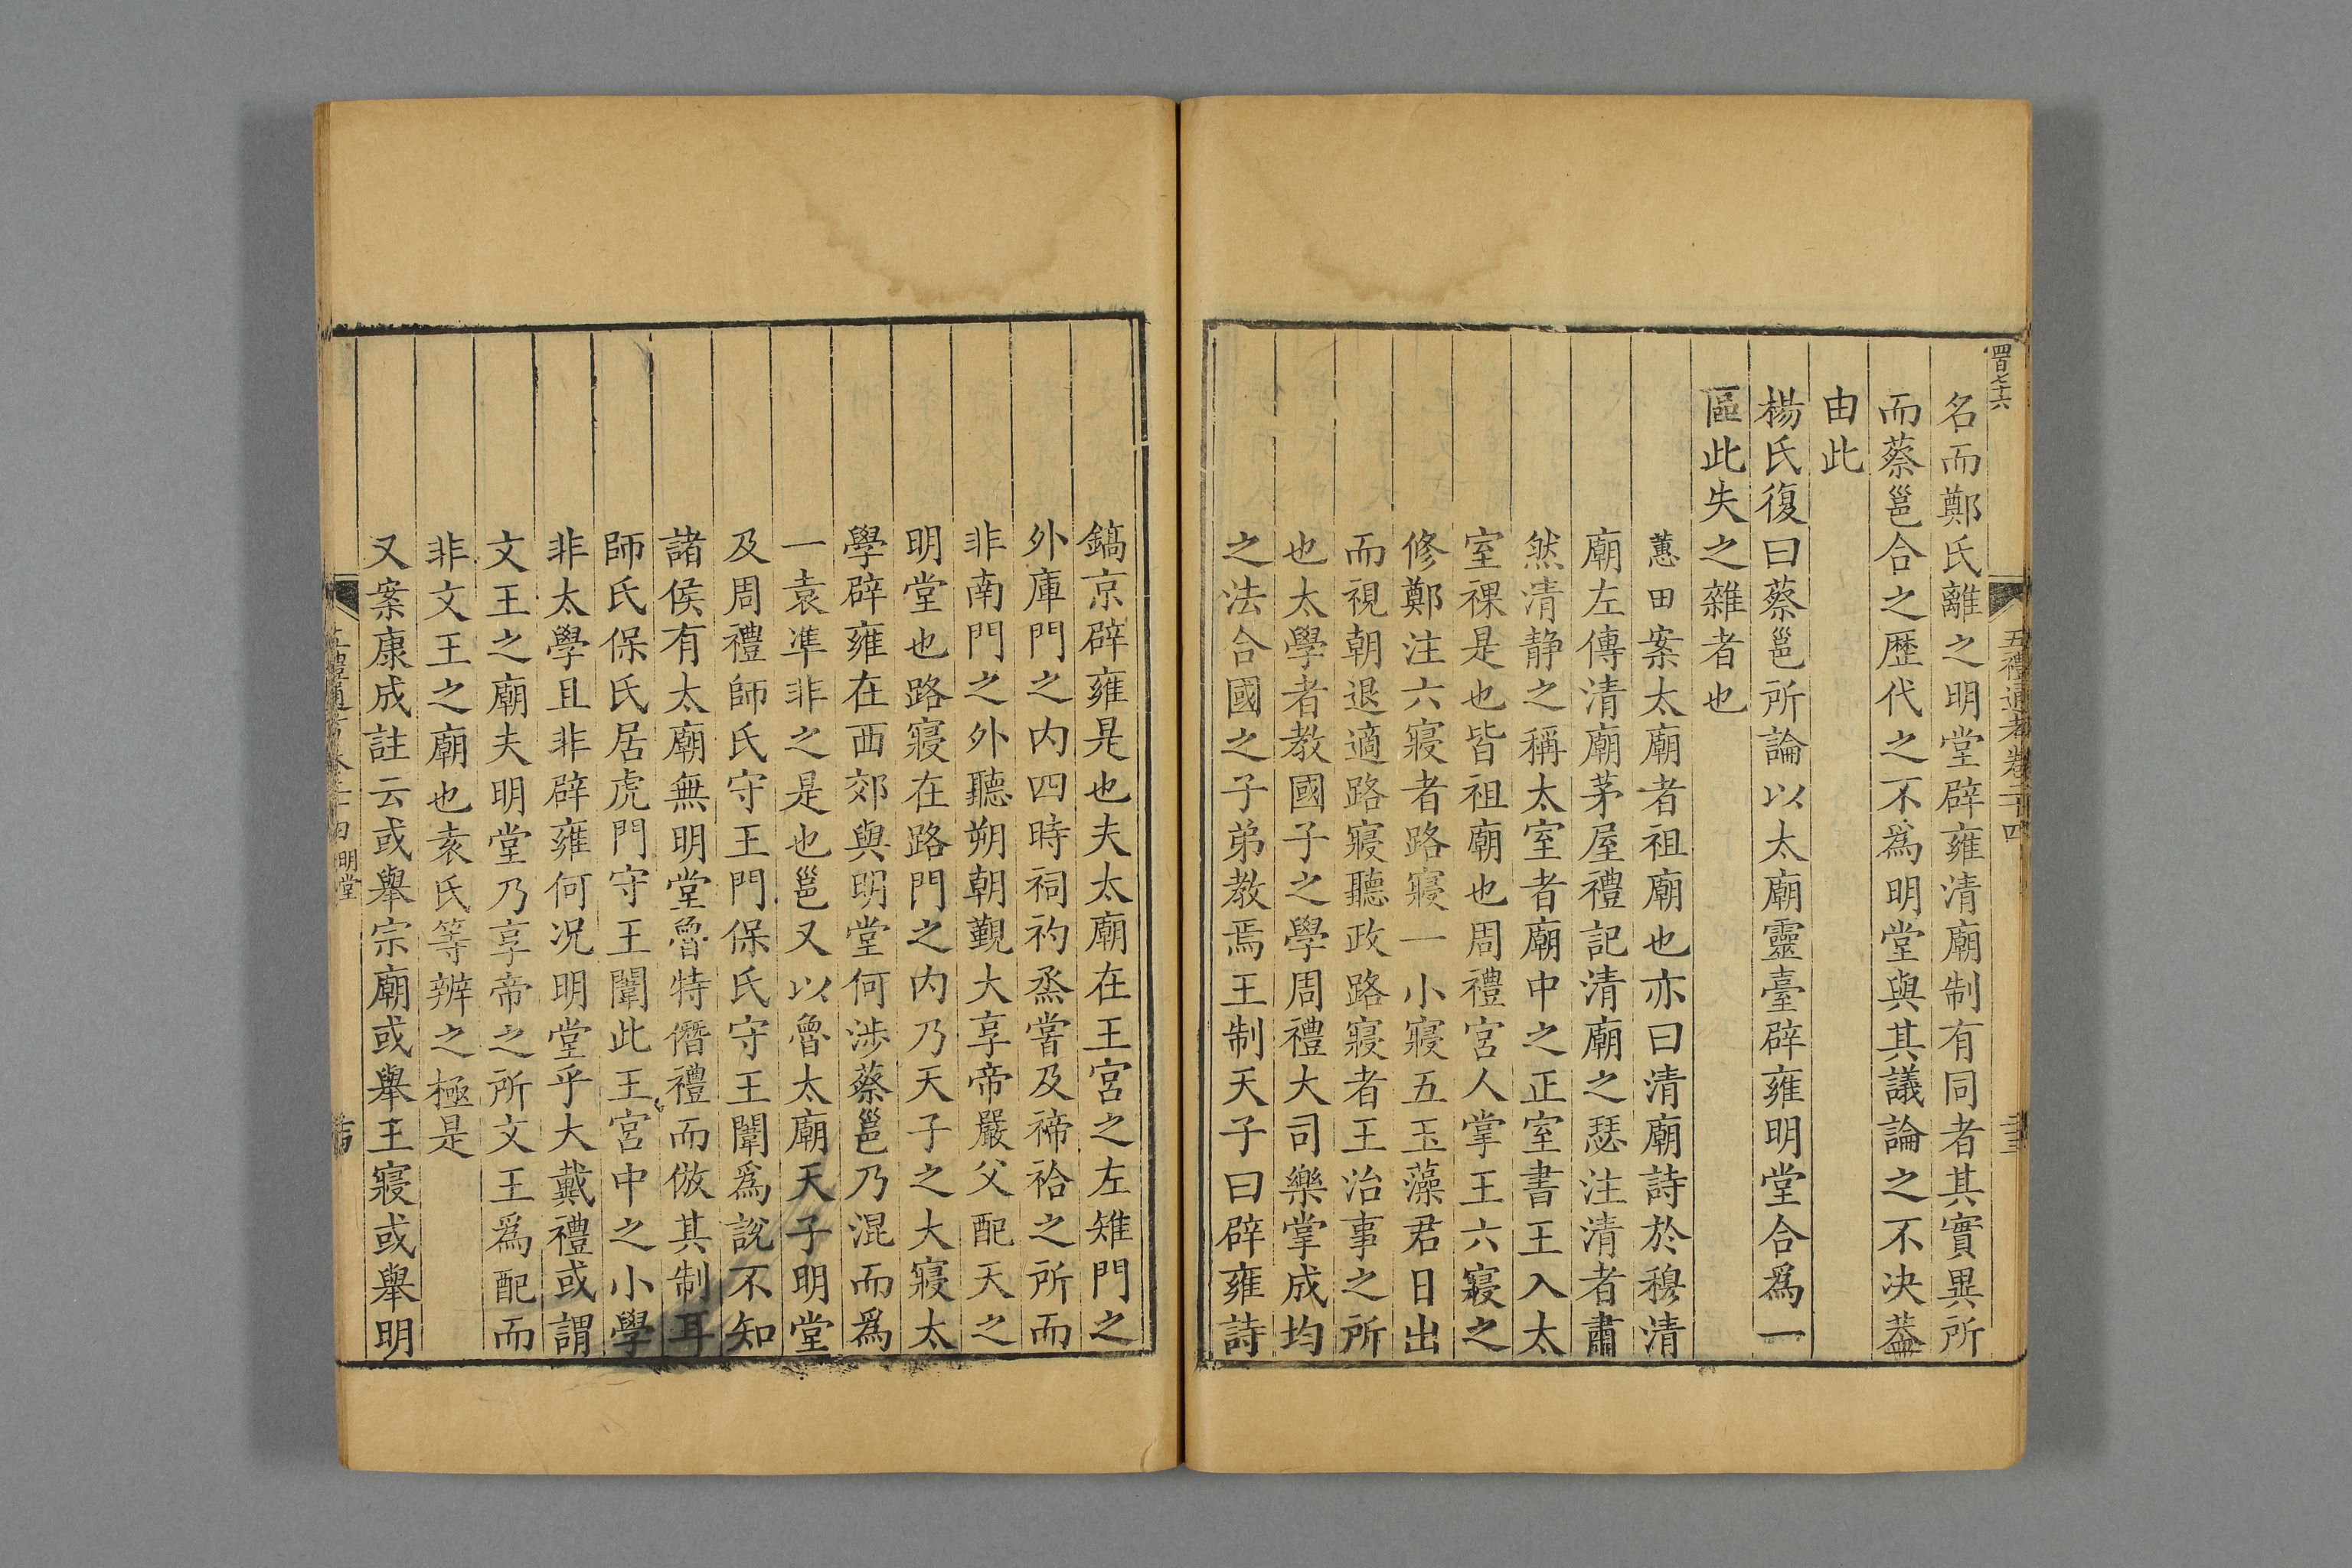 四百七十六
五禮通考卷二十四
二十三
名而鄭氏離之明堂辟雍清廟制有同者其實異所
而蔡邕合之歴代之不爲明堂與其議論之不决葢
由此
楊氏復曰蔡邕所論以太廟靈臺辟雍明堂合爲一
區此失之雜者也
蕙田案太廟者祖廟也亦曰清廟詩於穆清
廟左傳清廟茅屋禮記清廟之瑟注清者肅
然清静之稱太室者廟中之正室書王入太
室祼是也皆祖廟也周禮宮人掌王六寢之
修鄭注六寢者路寢一小寢五玉藻君日出
而視朝退適路寢聽政路寢者王治事之所
也太學者教國子之學周禮大司樂掌成均
之法合國之子弟教焉王制天子曰辟雍詩
鎬京辟雍是也夫太廟在王宮之左雉門之
外庫門之内四時祠礿烝嘗及禘祫之所而
非南門之外聽朔朝覲大享帝嚴父配天之
明堂也路寢在路門之内乃天子之大寢太
學辟雍在西郊與明堂何涉蔡邕乃混而爲
一袁凖非之是也邕又以魯太廟天子明堂
及周禮師氏守王門保氏守王闈爲說不知
諸侯有太廟無明堂魯特僭禮而倣其制耳
師氏保氏居虎門守王闈此王宮中之小學
非太學且非辟雍何况明堂乎大戴禮或謂
文王之廟夫明堂乃享帝之所文王爲配而
非文王之廟也袁氏等辨之極是
又案康成註云或舉宗廟或舉王寢或舉明
五禮通考卷二十四 明堂